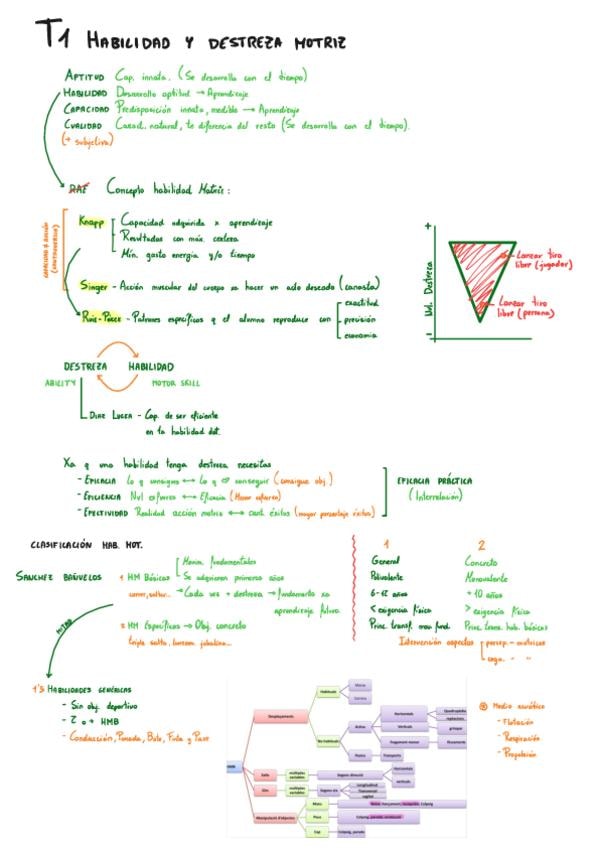 T1 HABILIDAD Y DESTREZA MOTRIZ
APTITUD Cap. innata. (Se desarrolla con el tiempo)
HABILIDAD Desarrollo aptitud → Aprendizaje
CAPACIDAD Predisposición innata, medible → Aprendizaje
CUALIDAD Caract. natural, te diferencia del resto (Se desarrolla con el tiempo).
(+ subjetiva)
Concepto habilidad Motriz:
Knapp
Capacidad adquirida x aprendizaje
Resultados con máx. certeza
Mín. gasto energía y/o tiempo
Singer - Acción muscular del cuerpo xa hacer un acto deseado (canasta)
Ruiz-Pérez - Patrones específicos q el alumno reproduce con
exactitud
precisión
economía
+
Niv. Destreza
-
Lanzar tiro
libre (jugador)
Lanzar tiro
libre (persona)
DESTREZA HABILIDAD
ABILITY MOTOR SKILL
DIAZ LUCEA - Cap. de ser eficiente
en la habilidad det.
Xa q una habilidad tenga destreza necesitas
- EFICACIA Lo q consigues ↔ Lo q conseguir (consigue obj.)
- EFICIENCIA Nvl esfuerzo ↔ Eficacia (Menor esfuerzo)
- EFECTIVIDAD Realidad acción motriz ↔ cant. éxitos (mayor porcentaje éxitos)
EFICACIA PRÁCTICA
(Interrelación)
CLASIFICACIÓN HAB. MOT.
SANCHEZ BAÑUELOS
1 HM Básicas
Movim. fundamentales
Se adquieren primeros años
correr, saltar...
Cada vez + destreza → fundamento xa
aprendizaje futuro.
2 HM Específicas → Obj. concreto
triple salto, lanzam. jabalina...
1 2
General Concreto
Polivalente Monovalente
6-12 años +10 años
< exigencia física > exigencia física
Princ. transf. mov. fund. Princ. trans. hab. básicas
Intervención aspectos
percep.-motrices
cogn. " "
1'5 HABILIDADES GENÉRICAS
- Sin obj. deportivo
- 2 o + HMB
- Conducción, Parada, Bote, Finta y Pase
Desplaçaments
Habituals
Marxa
Carrera
No habituals
Actius
Horizontals
Quadrupèdia
reptacions
Verticals
grimpar
Passius
Transports
Salts
múltiples
variables
Horizontals
verticals
Girs
múltiples
variables
Segons eix
Longitudinal
Transversal
sagital
Manipulació d'objectes
Mans
Peus
Cap
Medio acuático
- Flotación
- Respiración
- Propulsión